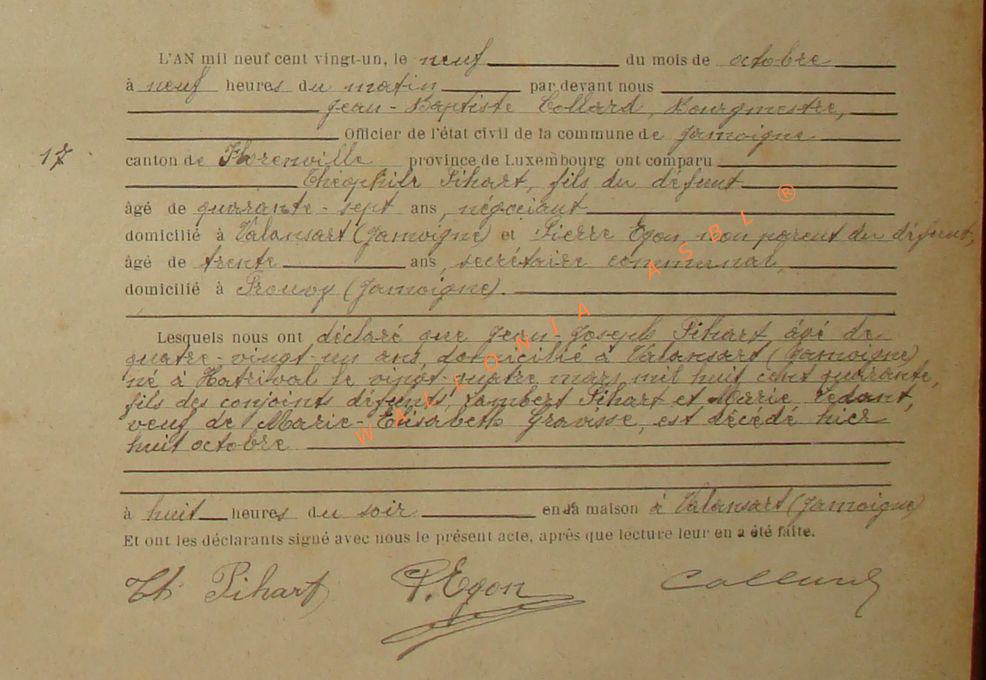 L'AN mil neuf cent vingt-un, le neuf du mois de octobre
à neuf heures du matin par devant nous
Jean-Baptiste Collard, Bourgmestre,
Officier de l'état civil de la commune de Jamoigne
17 canton de Florenville province de Luxembourg ont comparu
Théophile Pihart, fils du défunt
âgé de quarante-sept ans, négociant
domicilié à Valansart (Jamoigne) et Pierre Egon, non parent du défunt,
âgé de trente ans, secrétaire communal,
domicilié à Prouvy (Jamoigne).
Lesquels nous ont déclaré que Jean-Joseph Pihart, âgé de
quatre-vingt-un ans, domicilié à Valansart (Jamoigne)
né à Hatrival le vingt-quatre mars mil huit cent quarante,
fils des conjoints défunts, Lambert Pihart et Marie Lédant,
veuf de Marie-Elisabeth Gravisse, est décédé hier
huit octobre
à huit heures du soir en sa maison à Valansart (Jamoigne)
Et ont les déclarants signé avec nous le présent acte, après que lecture leur en a été faite.
Th Pihart P. Egon Collard
WALLONIA ASBL ®